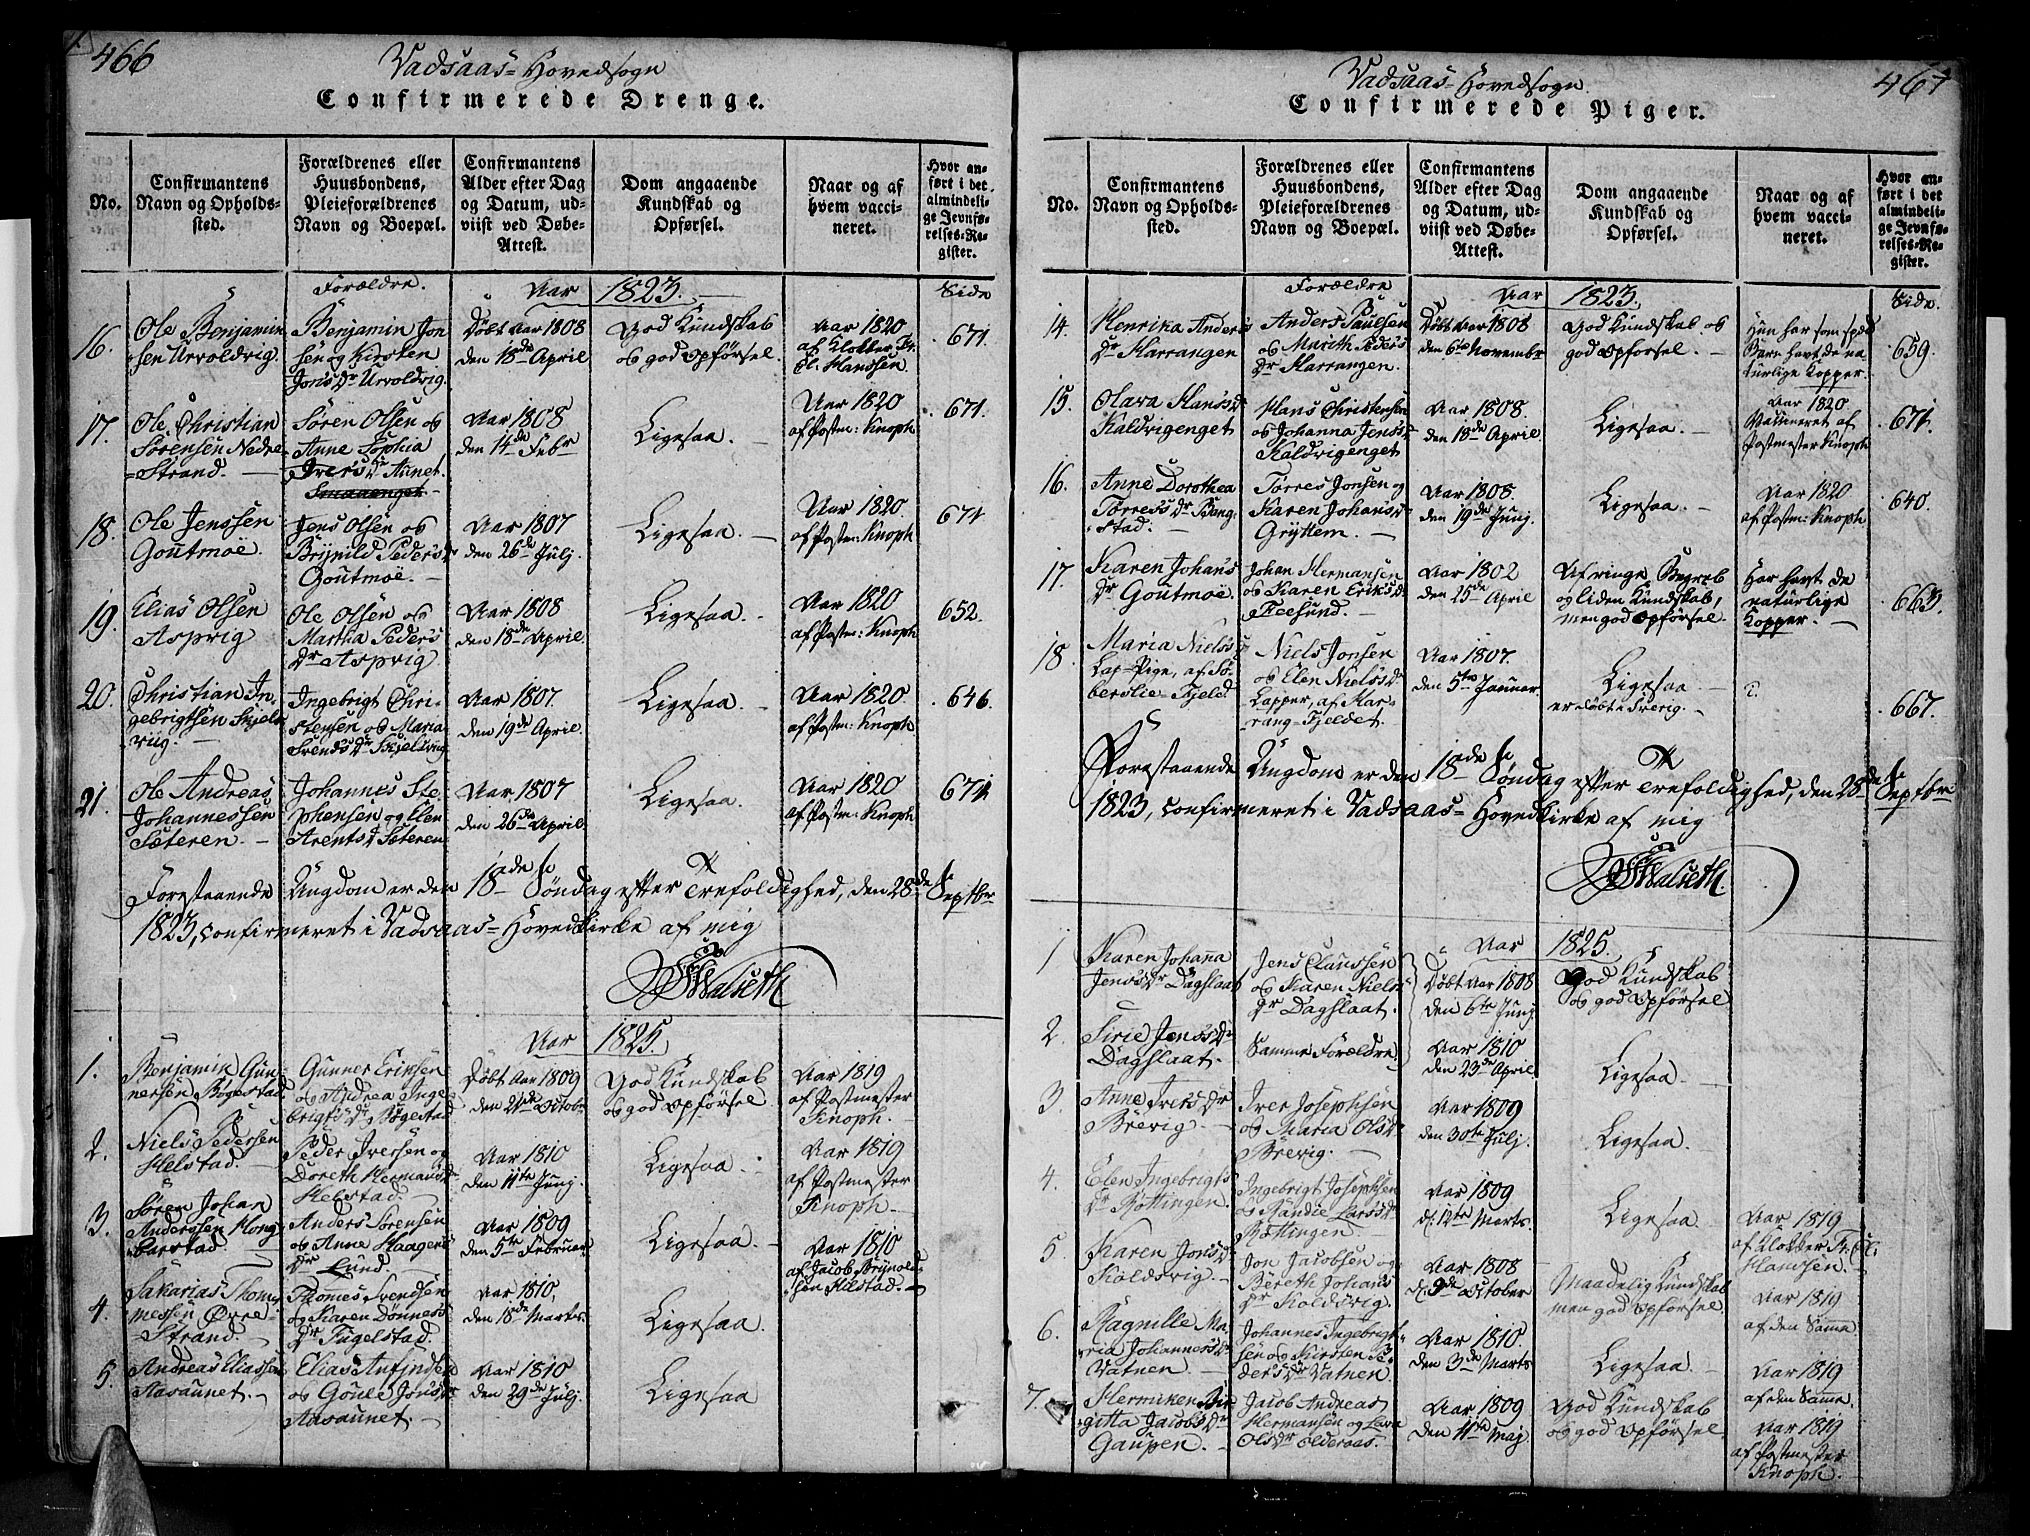 466
Vadsaas= Hovedsogn
Confirmerede Drenge.
No.
Confirmantens
Navn og Opholds-
sted.
Forældrenes eller
Huusbondens,
Pleieforældrenes
Navn og Boepæl.
Confirmantens
Alder efter Dag
og Datum, ud-
viist ved Døbe-
Attest.
Dom angaaende
Kundskab og
Opførsel.
Naar og af
hvem vacci-
neret.
Hvor an-
ført i det
almindeli-
ge Jevnfø-
relses-Re-
gister.
Forældre.
Aar 1823.
Side
16.
Ole Benjamin-
sen Urvoldvig.
Benjamin Jon
sen og Kirsten
Jonsdr Urvoldvig.
Døbt Aar 1808
den 18de April
God Kundskab
og god Opførsel.
Aar 1820
af Klokker Fr.
Cl. Hanssen.
671.
17.
Ole Christian
Sørensen Nedre
=Strand.
Søren Olsen og
Anne Sophia
Iversdr Aunet.
Smaaenget
Aar 1808
den 14de Febr
Ligesaa.
Aar 1820
af Postm: Knoph
671.
18.
Ole Jenssen
Goutmoe.
Jens Olsen og
Brynild Pedersdr
Goutmoe.
Aar 1807
den 26de Julj.
Ligesaa.
Aar 1820
af Postm: Knoph
671
19.
Elias Olsen
Aspvig
Ole Olsen og
Martha Peders
dr Aspvig
Aar 1808
den 18de April.
Ligesaa.
Aar 1820
af Postm: Knoph
652.
20.
Christian In-
gebrigtsen Skjel-
viig.
Ingebrigt Chri-
stensen og Maria
Svendsdr Skjelviig
Aar 1807.
den 19de April.
Ligesaa.
Aar 1820
af Postm: Knoph
646.
21.
Ole Andreas
Johannessen
Sæteren.
Johannes Ste-
phensen og Elen
Arentsdr Sæteren
Aar 1807
den 26de April.
Ligesaa.
Aar 1820
af Postm: Knoph
671.
Forestaaende Ungdom er den 18de Søndag efter Trefoldighed, den 28de Septbr
1823, confirmeret i Vadsaas= Hovedkirke af mig
Walseth
Aar 1825.
1.
Benjamin Gun-
nersen Bøgestad
Gunner Eriksen
og Andrea Inge
brigtsdr Bøgestad
Døbt Aar 1809
den 21de Octobr
God Kundskab
og god Opførsel
Aar 1819
af Postmester
Knoph.
2.
Niels Pedersen
Helstad.
Peder Iversen og
Doreth Hermansdr
Helstad.
Aar 1810
den 11te Junj.
Ligesaa
Aar 1819
af Postmester
Knoph.
3.
Søren Johan
Anderssen Hong-
barstad.
Anders Sørensen
og Anne Haagens
dr Lund
Aar 1809
den 5te Februar
Ligesaa.
Aar 1810
af Jacob Brynold-
sen Helstad.
4.
Sakarias Thom-
mesen Øvre-
Strand.
Thomes Svendsen
og Karen Dønnes
dr Fugelstad.
Aar 1810,
den 18de Marts.
Ligesaa.
5.
Andreas Eliassen
Aasaunet.
Elias Anfindsen
og Goule Jonsdr
Aasaunet.
Aar 1810
den 29de Julj.
Ligesaa
467
Vadsaas= Hovedsogn.
Confirmerede Piger.
No.
Confirmantens
Navn og Opholds-
sted.
Forældrenes eller
Huusbondens,
Pleieforældrenes
Navn og Boepæl.
Confirmantens
Alder efter Dag
og Datum, ud-
viist ved Døbe-
Attest.
Dom angaaende
Kundskab og
Opførsel.
Naar og af
hvem vacci-
neret.
Hvor an-
ført i det
almindeli-
ge Jevnfø-
relses-Re-
gister.
Forældre
Aar 1823.
Side.
14.
Henrika Anders
dr Harrangen
Anders Paulsen
og Marith Peders
dr Harrangen.
Døbt Aar 1808
den 6te Novembr
God Kundskab og
god Opførsel.
Hun har som spæd
Barn havt de na
turlige Kopper.
659.
15.
Olava Hansdr
Kaldvigenget
Hans Christensen
og Johanna Jensdr
Kaldvigenget
Aar 1808.
den 18de April.
Ligesaa.
Aar 1820
Vaccineret af
Postmester Knoph
671.
16.
Anne Dorothea
Torresdr Bang-
stad.
Torres Jonsen og
Karen Johansdr
Gryttem.
Aar 1808.
den 19de Junj.
Ligesaa.
Aar 1820
af Postm: Knoph
640.
17.
Karen Johans
dr Goutmoe.
Johan Hermansen
og Karen Eriksdr
Teesund.
Aar 1802
den 25de April
Af ringe Begreb
og liden Kundskab,
men god Opførsel.
Har havt de
naturlige
Kopper.
663.
18.
Maria Nielsdr
Lap-Pige, af Sø-
berslie-Fjeld
Niels Jonsen
og Elen Nielsdr
Lapper, af Har-
rang-Fjeldet.
Aar 1807.
den 5te Januar.
Ligesaa.
er døbt i Sverig.
667.
Forestaaende Ungdom er den 18de Søndag efter Trefoldighed, den 28de Septbr
1823, confirmeret i Vadsaas= Hovedkirke af mig
Walseth.
Aar 1825.
1
Karen Johanna
Jensdr Dagslaat
Jens Claussen
og Karen Niels
dr Dagslaat.
Døbt Aar 1808
den 6te Junj.
God Kundskab
og god Opførsel
2.
Sirie Jensdr
Dagslaat.
Samme Forældre
Aar 1810
den 23de April
Ligesaa
3.
Anne Iversdr
Brevig.
Iver Josephsen
og Maria Olsdr
Brevig.
Aar 1809
den 30te Julj.
Ligesaa.
4.
Elen Ingebrigts
dr Bøttingen.
Ingebrigt Josephsen
og Randie Larsdr
Bøttingen.
Aar 1809
d. 12te Marts.
Ligesaa.
Aar 1819
af Klokker Fr. Cl.
Hanssen.
5.
Karen Jonsdr
Koldsvig.
Jon Jacobsen og
Bereth Johans
dr Koldsvig.
Aar 1808
d. 9de October
Maadelig Kundskab
men god Opførsel.
Aar 1819
af den Samme
6.
Ragnille Ma-
ria Johannesdr
Vatnen.
Johannes Ingebrigt-
sen og Kirsten Pe-
dersdr Vatnen.
Aar 1810.
den 3de Marts
Ligesaa.
Aar 1819
af den Samme.
7.
Hermiken Bir
gitta Jacobsdr
Gaupen.
Jacob Andreas
Hermansen og Lava
Olsdr Olderaas.
Aar 1809
den 11te Maj.
God Kundskab
og god Opførsel.
Aar 1819
af Postmester
Knoph.